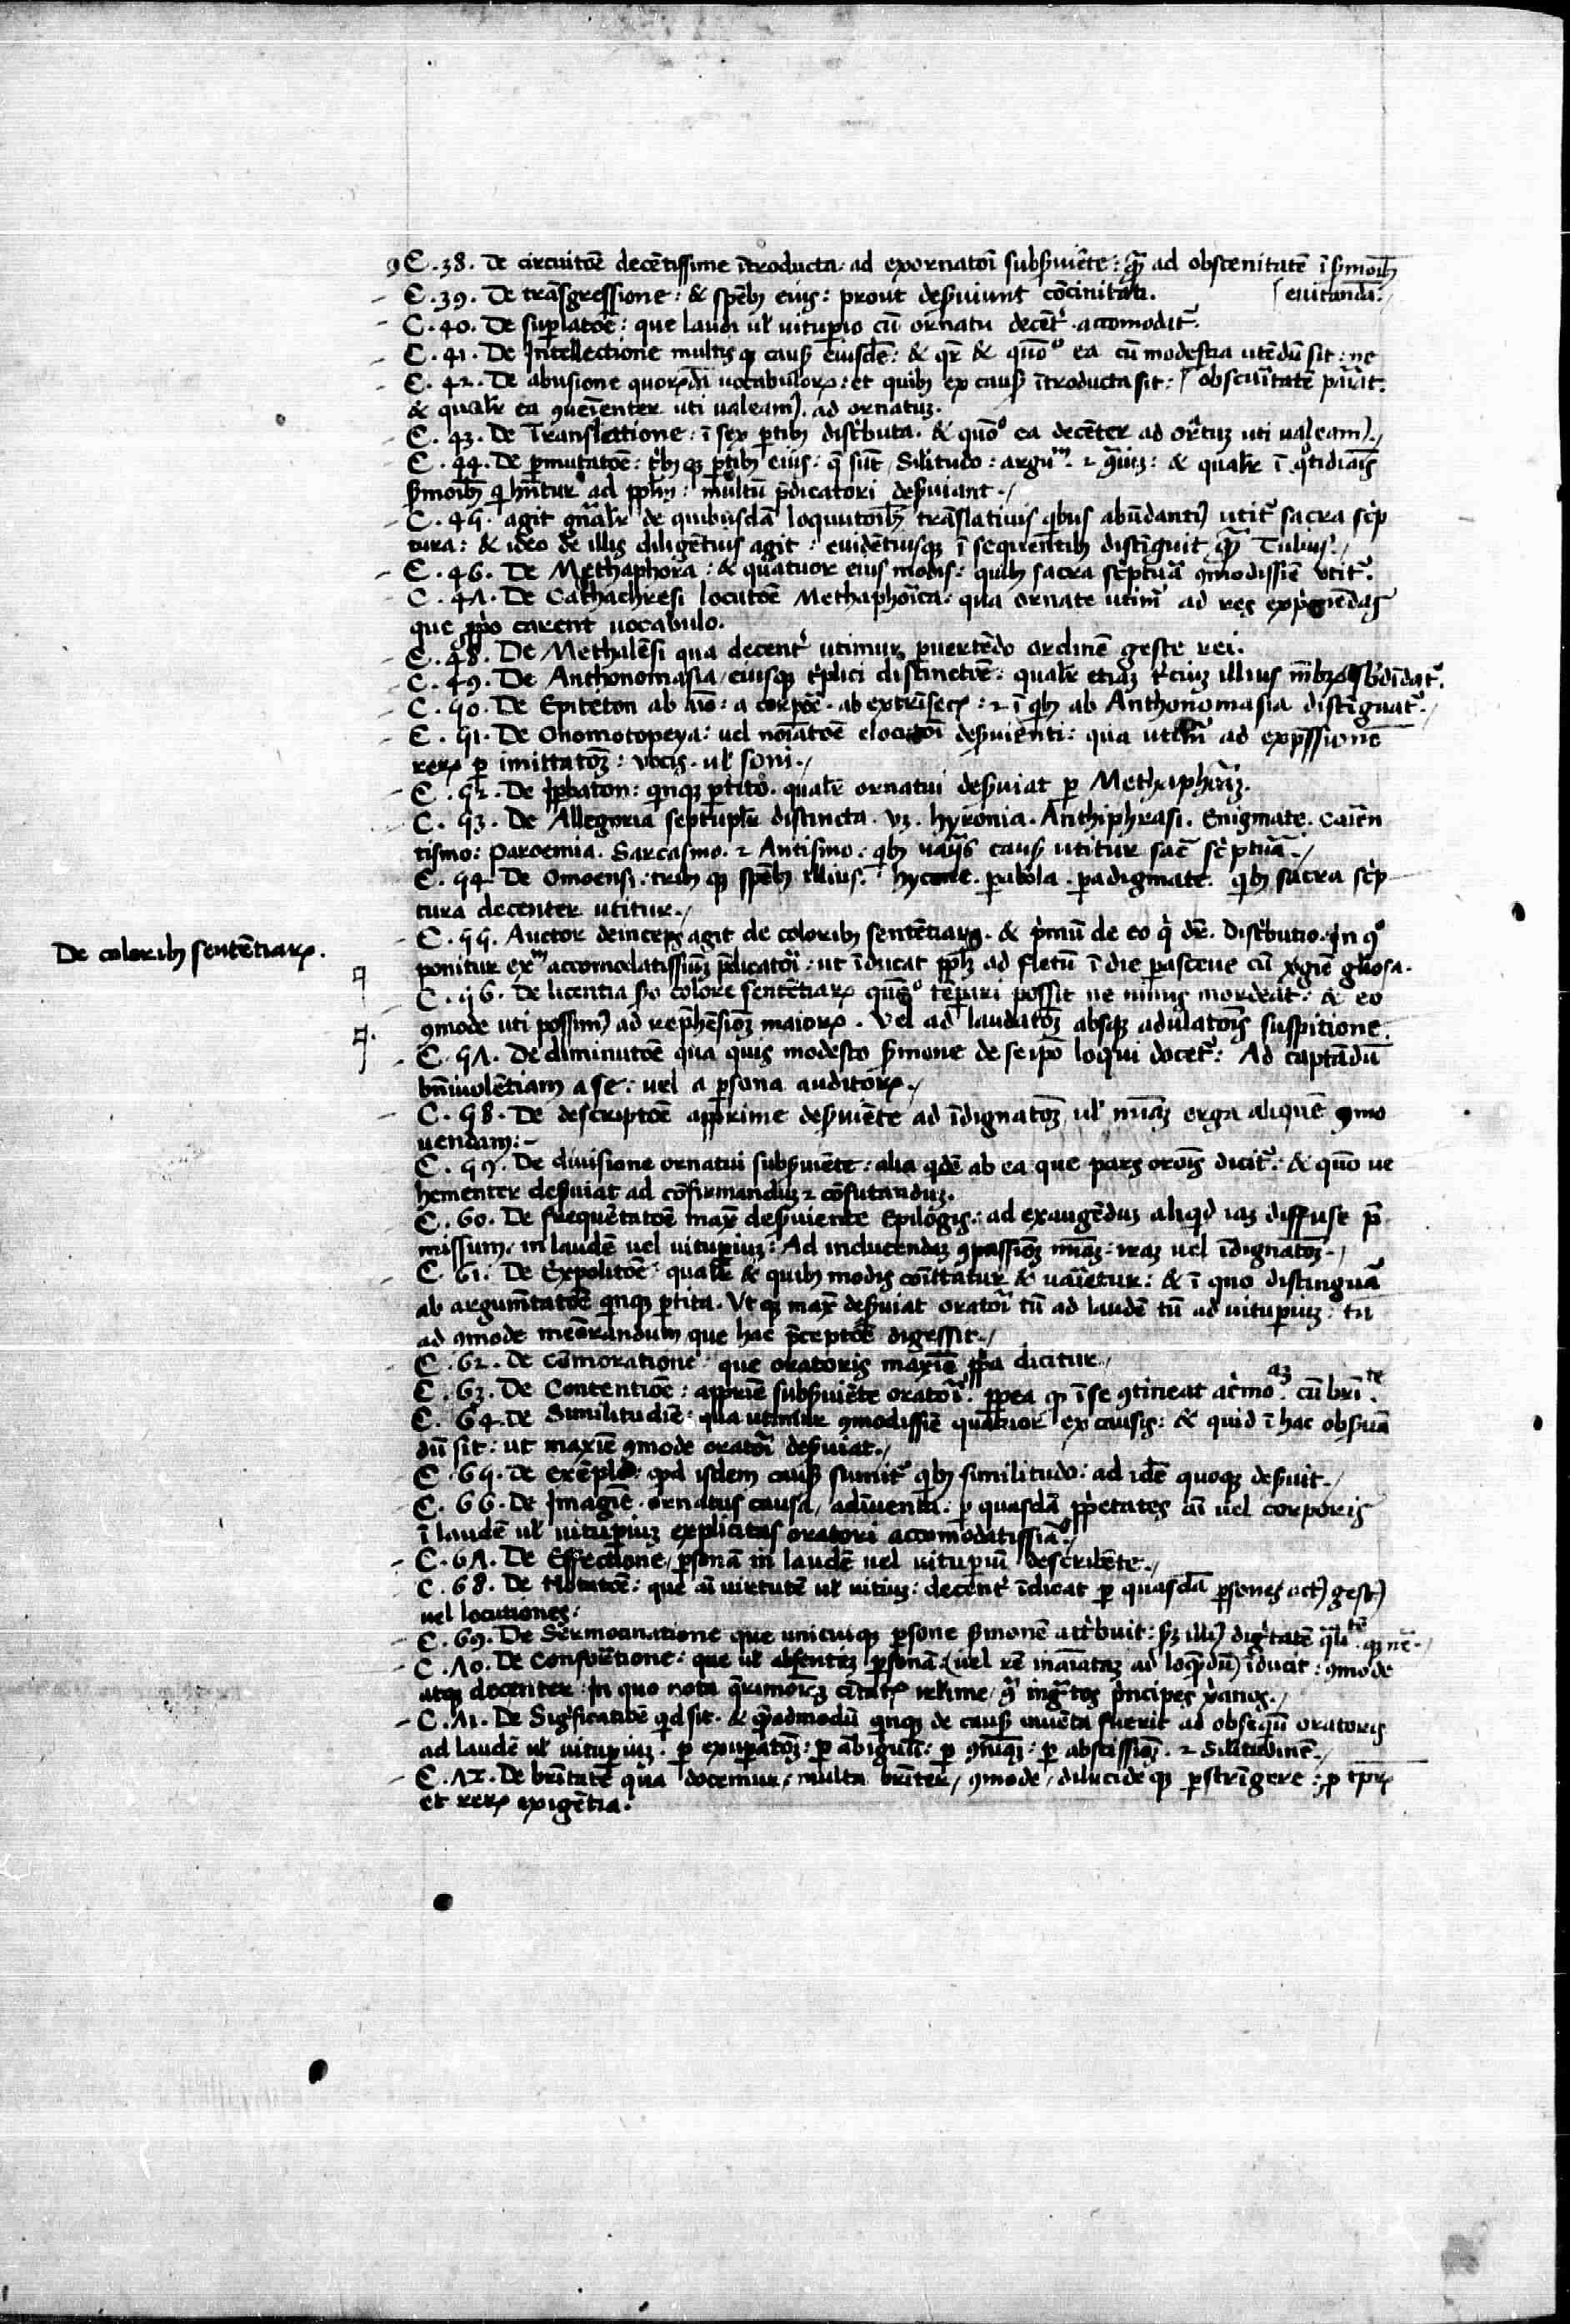 C .38. De circuitōe decētissime ītroducta. ad exornatoī subẜuiēte: qꝫ ad obscenitatē ī ẜmoībꝫ
[euitandā.
C .39. De trāsgressione: & spēbꝫ eiꝰ: prout deẜuiunt cōcinitati.
C .40. De suꝑlatōe: que laudi ul̕ uituꝑio cū ornatu decēt̕ accomodat̕.
C .41. De Intellectione multis qꝫ causꝭ eiusdē: & qr̄ & quō° ea cū modestia utēdū sit: ne
[obscuritatē pariat.
C .42. De abusione quorūdā uocabulorꝝ: et quibꝫ ex causꝭ ītroducta sit:
& qualr̄ ea ꝯueniēnter uti ualeam⁹. ad ornatuꝫ.
C .43. De Translatione: ī sex ꝑtibꝫ distributa. & quō° ea decēter ad or̄tuꝫ uti ualeam⁹.
C .44. De ꝑmutatōe: tribꝫ qꝫ ꝑtibꝫ eius: q̄ sūt, Silitudo: argum̄. & ꝯͣriuꝫ: & qualr̄ ī quotidiaīs
ẜmoībꝫ q̇ hn̄tur ad pp̄lm: multū p̄dicatori deẜuiant.
C .45. agit gn̄alr̄ de quibusdā loquutoībꝫ trāslatiuis qbus abūdant⁹ utit̕ sacra sc̄p
tura: & ideo de illis diligētius agit: euidētiusqꝫ ī sequentibꝫ distīguit qꝫ Tulius.
C .46. De Methaphora: & quatuor eius modis: quibꝫ sacra sc̄ptura ꝯmodissīe utit̕.
C .47. De Cathachresi locutōe Methaphorīca: qua ornate utim̄ ad res exp̄miēdas
que ꝓpo carent uocabulo.
C .48. De Methalēsi qua decent̕ utimur, ꝑuertēdo ordinē geste rei.
C .49. De Anthonomasia, eiusqꝫ t̕plici distinctōe: qualr̄ etiaꝫ t̕ciuꝫ illius m̄bꝫ
C .50. De Epiteton ab aīo: a corꝑe. ab extrīsecꝫ: & ī qbꝫ ab Anthonomasia distīguat̕.
C .51. De Onomotopeya: uel noīatōe elocutoī deẜuienti: qua utim̄ ad exp̄ssionē
rerꝝ ꝑ imittatōꝫ: uocis. ul̕ soni.
C .52. De Ipbaton: qnqꝫ ꝑtito. qualr̄ ornatui deẜuiat ꝑ Methaphorāꝫ.
C .53. De Allegoria septuplr̄ distincta. vꝫ. hyronia. Anthiphrasi. Enigmate. Carīen
tismo: Paroemia. Sarcasmo. & Antismo: qbꝫ uarijs causꝭ utitur sac̄ sc̄ptura.
C .54. De Omoensi. tribꝫ qꝫ spēbꝫ illius. hycone. ꝑabola. ꝑadigmate. qbꝫ sacra sc̄p
tura decenter utitur.
De coloribꝫ sentētiarꝝ.
C .55. Auctor deinceps agit de coloribꝫ sentētiarꝝ. & p̄mū de eo q̇ dr̄. Distributio. In q°
ponitur exm̄ accomodatissimꝫ p̄dicatori: ut īducat pp̄lꝫ ad fletū ī die parasceue cū v̄gīe gl̄iosa.
C .56. De licentia ẜo colore sentētiarꝝ quō° tēꝑari possit ne nimis mordeat: & eo
ꝯmode uti possim⁹ ad rep̄hēsiōꝫ maiorꝝ. Vel ad laudatōꝫ absqꝫ adulatoīs suspitione.
C .57. De diminutōe qua quis modesto ẜmone de seipo loqui docet̕: Ad captādū
bn̄iuolētiam a se: uel a ꝑsona auditorꝝ.
C .58. De descriptōe apprime deẜuiēte ad īdignatōꝫ ul̕ mīaꝫ erga aliquē ꝯmo
uendam:-
C .59. De diuisione ornatui subẜuiēte: alia qdē ab ea que pars oroīs dicit̕: & quō ue
hementer deẜuiat ad cōfirmanduꝫ & cōfutanduꝫ.
C .60. De frequētatōe max̄ deẜuiente Epilogis: ad exaugēduꝫ aliqd iaꝫ diffuse p̄
missum. in laudē uel uituꝑiuꝫ: Ad inducendaꝫ ꝯpassiōꝫ mīaꝫ. iraꝫ uel īdignatōꝫ.
C .61. De Expolitōe qualr̄ & quibꝫ modis comīttatur & uarietur: & ī quo distinguā
ab argumētatōe qnqꝫ ꝑtita. Vt qꝫ max̄ deẜuiat oratorī tū ad laudē tū ad uituꝑiuꝫ: tū
ad ꝯmode memorandum que hac p̄ceptōe digessit.
C .62. De Cōmoratione que oratoris maxīe ꝓpa dicitur.
C .63. De Contentiōe: apprīe subẜuiēte oratorī. ꝓpea qꝫ ī se ꝯtineat acrimoaꝫ cū brīte.
C .64. De Similitudīe: qua utimur ꝯmodissīe quatuor ex causis: & quid ī hac obẜuā
dū sit: ut maxīe ꝯmode oratorī deẜuiat.
C .65. De exēplo: qd isdem causꝭ sumit̕ qbꝫ similitudo: ad idē quoqꝫ deẜuit.
C .66. De Imagīe. ornatus causa, adīuenta. ꝑ quasdā ꝓp̄etates aī uel corporis
ī laudē ul̕ uituꝑiuꝫ explicitas oratori accomodatissimā.
C .67. De Effectione, ꝑsonā in laudē uel uituꝑiū describēte.
C .68. De Notatōe: que aī uirtutē ul̕ uitiuꝫ: decent̕ īdicat ꝑ quasdā ꝑsones act⁹ gest⁹
uel locutiones:
C .69. De Sermocinatione que unicuiqꝫ ꝑsone ẜmonē att̕buit: ẜꝫ illi⁹ dig̕tatē
C .70. De Conformatione: que ul̕ absentis ꝑsonā. (uel rē inaīataꝫ ad loquēdū) īducit: ꝯmode
atqꝫ decenter. In quo nota q̄rimoīas ꝯͣ ingͣtos p̄ncipes x̄anos.
C .71. De Sig̕ficatiōe qd sit. & q̄admodū qnqꝫ de causꝭ inuēta fuerit ad obsequiū oratoris
ad laudē ul̕ uituꝑiuꝫ. ꝑ exuꝑatōꝫ: ꝑ ābiguū: ꝑ ꝯn̄tiaꝫ: ꝑ abscissiōꝫ. & Silitudinē.
C .72. De breuitatē qua docemur, multa breuiter, ꝯmode, dilucide qꝫ ꝑstrīgere: ꝓ tꝑꝝ
et rerꝝ exigētia.